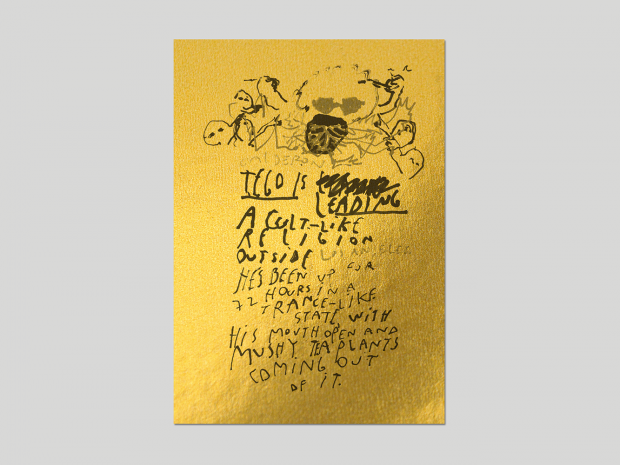 CALDERON
TEGO IS
LEADING
A CULT-LIKE
RELIGION
OUTSIDE LOS ANGELES
HES BEEN UP FOR
72 HOURS IN A
TRANCE-LIKE
STATE WITH
HIS MOUTH OPEN AND
MUSHY TEA PLANTS
COMING OUT
OF IT.